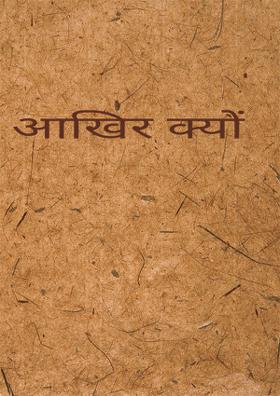 आखिर क्यों